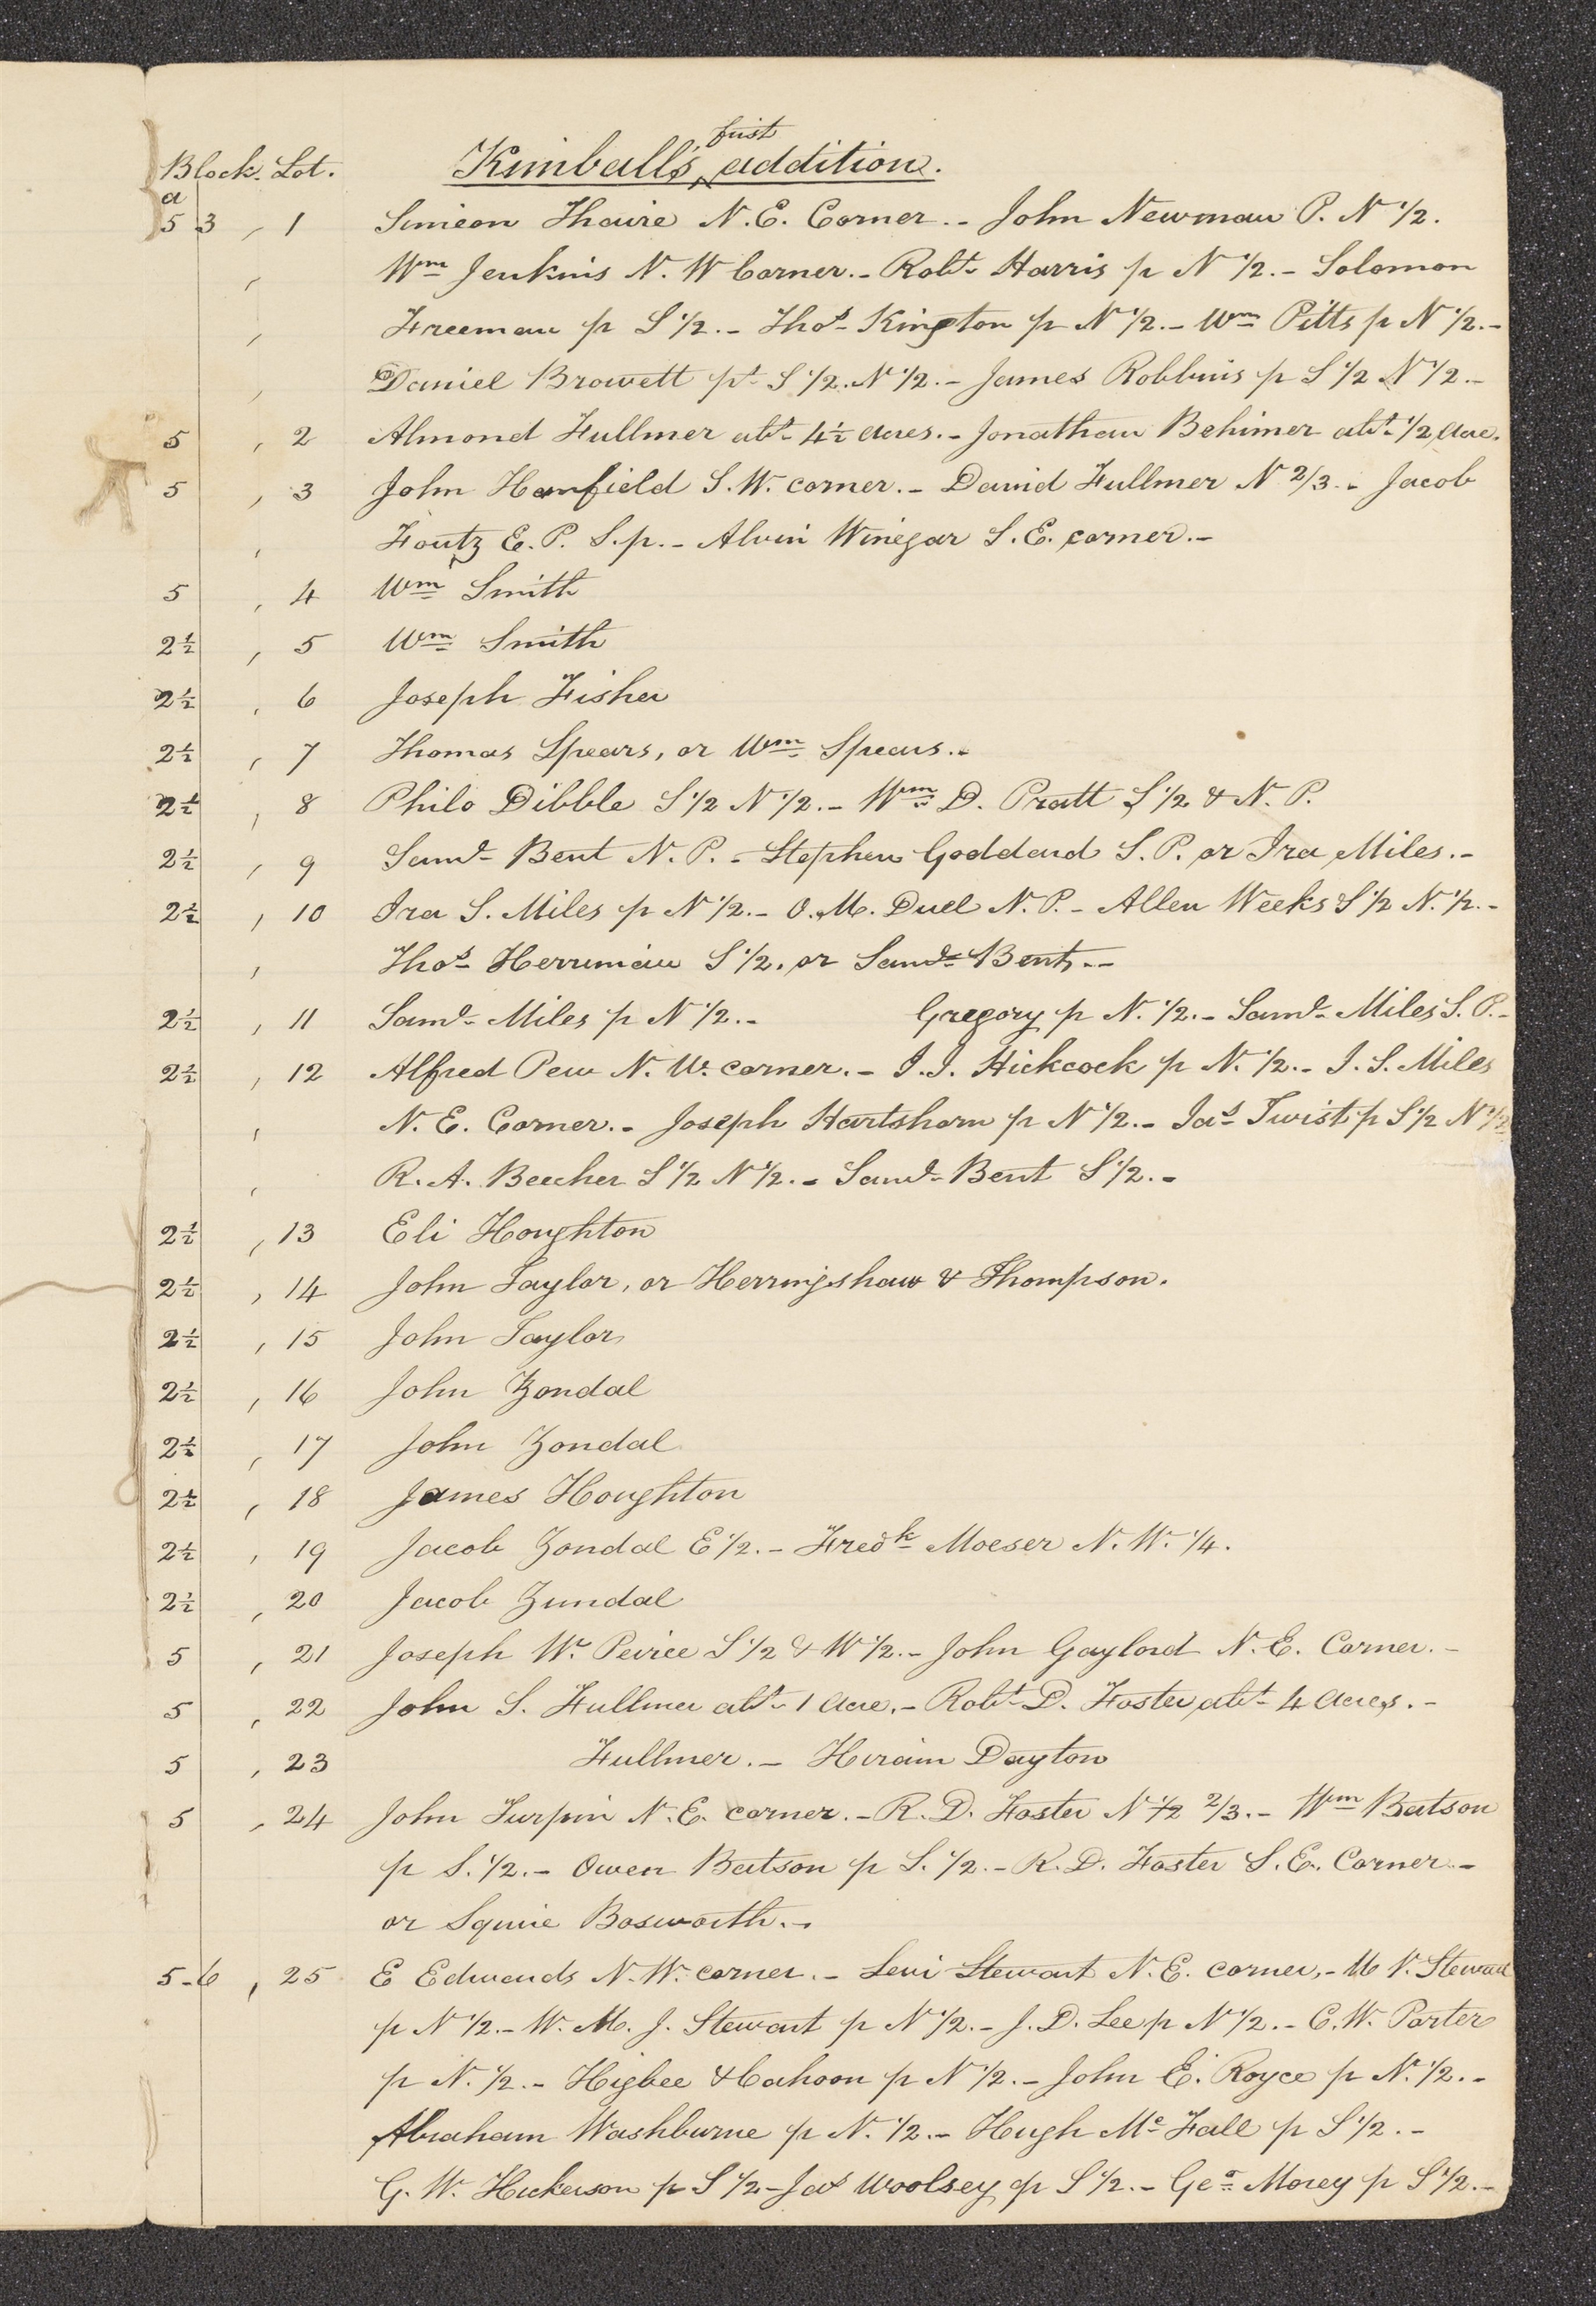 Block. Lot. Kimball's first addition.
a
5 3 , 1 Simeon Thaire N.E. Corner.- John Newman P. N 1/2.
, Wm Jenkins N. W Corner.- Robt Harris p N 1/2.- Solomon
, Freeman p S 1/2.- Thos Kington p N 1/2.- Wm Pitts p N 1/2.-
, Daniel Browett pt S 1/2. N 1/2.- James Robbins p S 1/2 N 1/2.-
5 , 2 Almond Fullmer abt 4 1/2 Acres.- Jonathan Behimer abt 1/2 Acre.
5 , 3 John Hanfield S. W. corner.- David Fullmer N 2/3.- Jacob
, Foutz E. P. S. p.- Alvin Winegar S. E. corner.-
5 , 4 Wm Smith
2 1/2 , 5 Wm Smith
2 1/2 , 6 Joseph Fisher
2 1/2 , 7 Thomas Spears, or Wm Spears.-
2 1/2 , 8 Philo Dibble S 1/2 N 1/2.- Wm D. Pratt S 1/2 & N. P.
2 1/2 , 9 Saml Bent N. P.- Stephen Goddard S. P. or Ira Miles.-
2 1/2 , 10 Ira S. Miles p N 1/2.- O. M. Duel N. P.- Allen Weeks S 1/2 N. 1/2.-
, Thos Herriman S 1/2. or Saml Bent.-
2 1/2 , 11 Saml Miles p N 1/2.- Gregory p N. 1/2.- Saml Miles S. P.-
2 1/2 , 12 Alfred Pew N. W. corner.- I. I. Hickcock p N. 1/2.- I. S. Miles
, N. E. Corner.- Joseph Hartshorn p N 1/2.- Jas Twist p S 1/2 N 1/2
, R. A. Beecher S 1/2 N 1/2.- Saml Bent S 1/2.-
2 1/2 , 13 Eli Houghton
2 1/2 , 14 John Taylor, or Herringshaw & Thompson.
2 1/2 , 15 John Taylor
2 1/2 , 16 John Zondal
2 1/2 , 17 John Zondal
2 1/2 , 18 James Houghton
2 1/2 , 19 Jacob Zondal E 1/2.- Fredk Moeser N. W. 1/4.
2 1/2 , 20 Jacob Zundal
5 , 21 Joseph W. Peirce S 1/2 & W 1/2.- John Gaylord N. E. Corner.-
5 , 22 John S. Fullmer abt 1 Acre.- Robt D. Foster abt 4 Acres.-
5 , 23 Fullmer.- Hiram Dayton
5 , 24 John Turpin N. E. corner.- R. D. Foster N 1/2 2/3.- Wm Batson
p S. 1/2.- Owen Batson p S. 1/2.- R. D. Foster S. E. Corner.-
or Squire Bosworth.-
5-6 , 25 E Edwards N. W. corner.- Levi Stewart N. E. corner,- U V. Stewart
p N 1/2.- W. M. J. Stewart p N 1/2.- J. D. Lee p N 1/2.- C. W. Porter
p N. 1/2.- Higbee & Cahoon p N 1/2.- John E. Royce p N. 1/2.-
Abraham Washburne p N. 1/2.- Hugh Mc Fall p S 1/2.-
G. W. Hickerson p S 1/2- Jas Woolsey p S 1/2.- Geo Morey p S 1/2.-